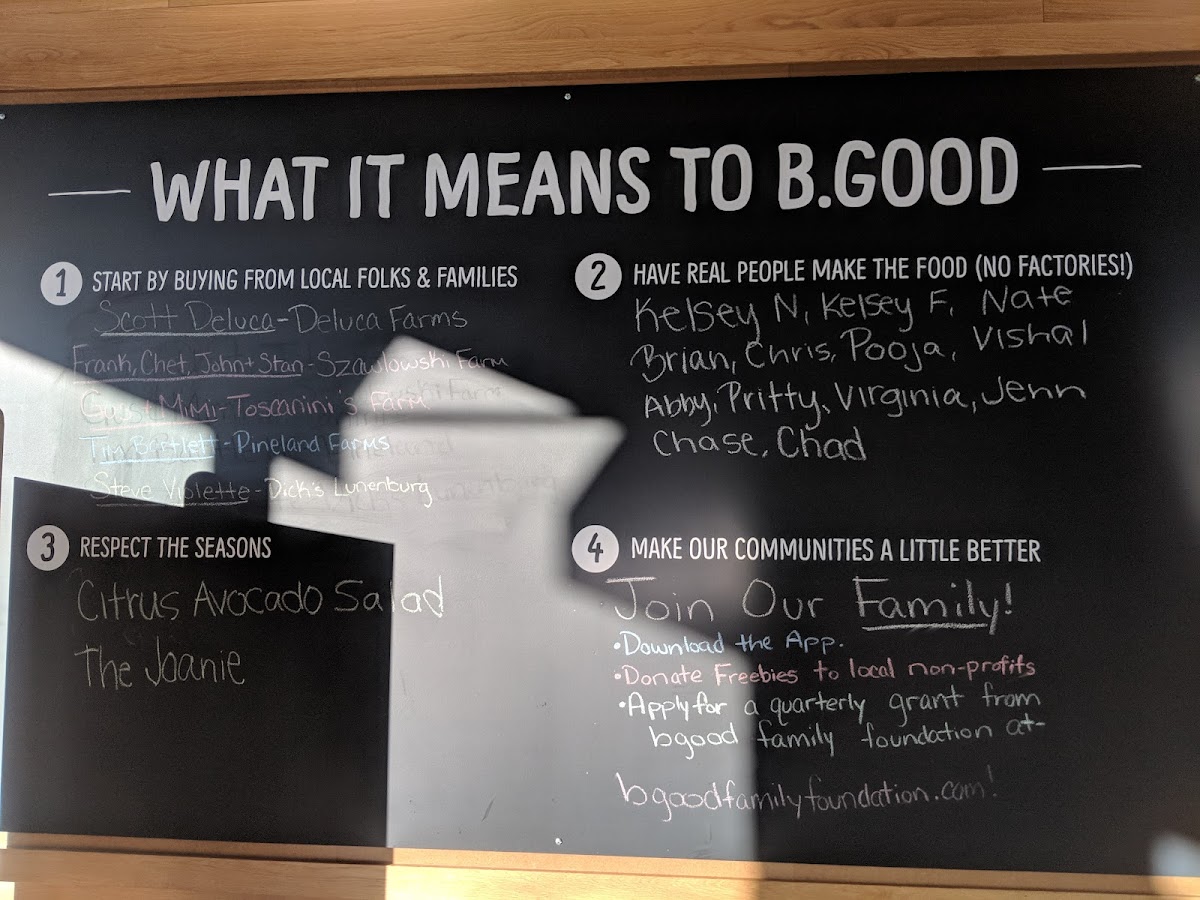 WHAT IT MEANS TO B.GOOD
1 START BY BUYING FROM LOCAL FOLKS & FAMILIES
Scott Deluca-Deluca Farms
Frank, Chet, John+Stan-Szawlowski Farm
Gus+Mimi-Toscanini's Farm
Tim Bartlett-Pineland Farms
Steve Violette-Dick's Lunenburg
2 HAVE REAL PEOPLE MAKE THE FOOD (NO FACTORIES!)
Kelsey N, Kelsey F, Nate
Brian, Chris, Pooja, Vishal
Abby, Pritty, Virginia, Jenn
Chase, Chad
3 RESPECT THE SEASONS
Citrus Avocado Salad
The Joanie
4 MAKE OUR COMMUNITIES A LITTLE BETTER
Join Our Family!
•Download the App.
•Donate Freebies to local non-profits
•Apply for a quarterly grant from
bgood family foundation at-
bgoodfamilyfoundation.com!